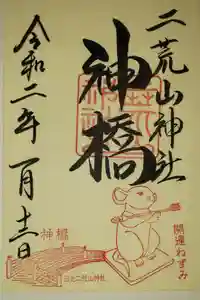 二荒山神社
神橋
令和二年一月十三日
開運ねずみ
神橋
日光二荒山神社